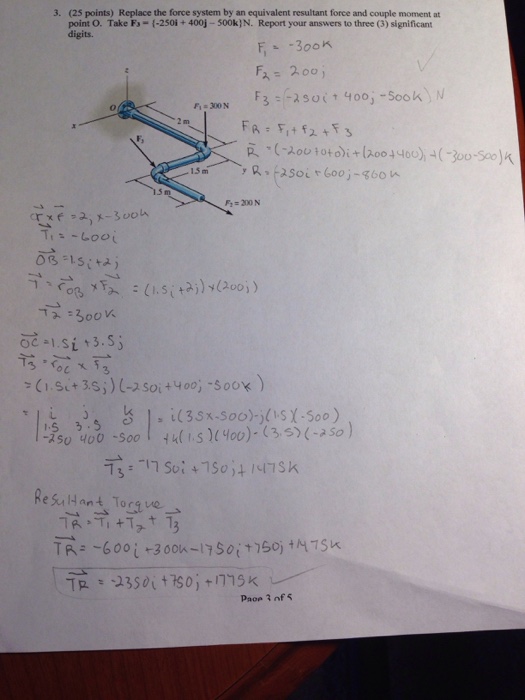 3. (25 points) Replace the force system by an equivalent resultant force and couple moment at
point O. Take F₃ = {-250i + 400j – 500k}N. Report your answers to three (3) significant
digits.
F₁ = -300k
F₂ = 200j
F₃ = {-250i + 400j - 500k} N
z
O
F₁ = 300 N
2 m
x
F₃
1.5 m
y
1.5 m
F₂ = 200 N
FR = F₁ + F₂ + F₃
R = (-200+0+0)i + (200+400)j + (-300-500)k
R = {-250i + 600j - 800k
r x F = 2j x -300k
T₁ = -600i
OB = 1.5i + 2j
T = rOB x F₂ = (1.5i + 2j) x (200j)
T₂ = 300k
OC = 1.5i + 3.5j
T₃ = rOC x F₃
= (1.5i + 3.5j) (-250i + 400j - 500k)
= | i j k
1.5 3.5 0
-250 400 -500 | = i(3.5x-500) - j(1.5)(-500)
+k(1.5)(400) - (3.5)(-250)
T₃ = -1750i + 750j + 1475k
Resultant Torque
TR = T₁ + T₂ + T₃
TR = -600i + 300k - 1750i + 750j + 1475k
TR = -2350i + 750j + 1775k
Page 3 of 5